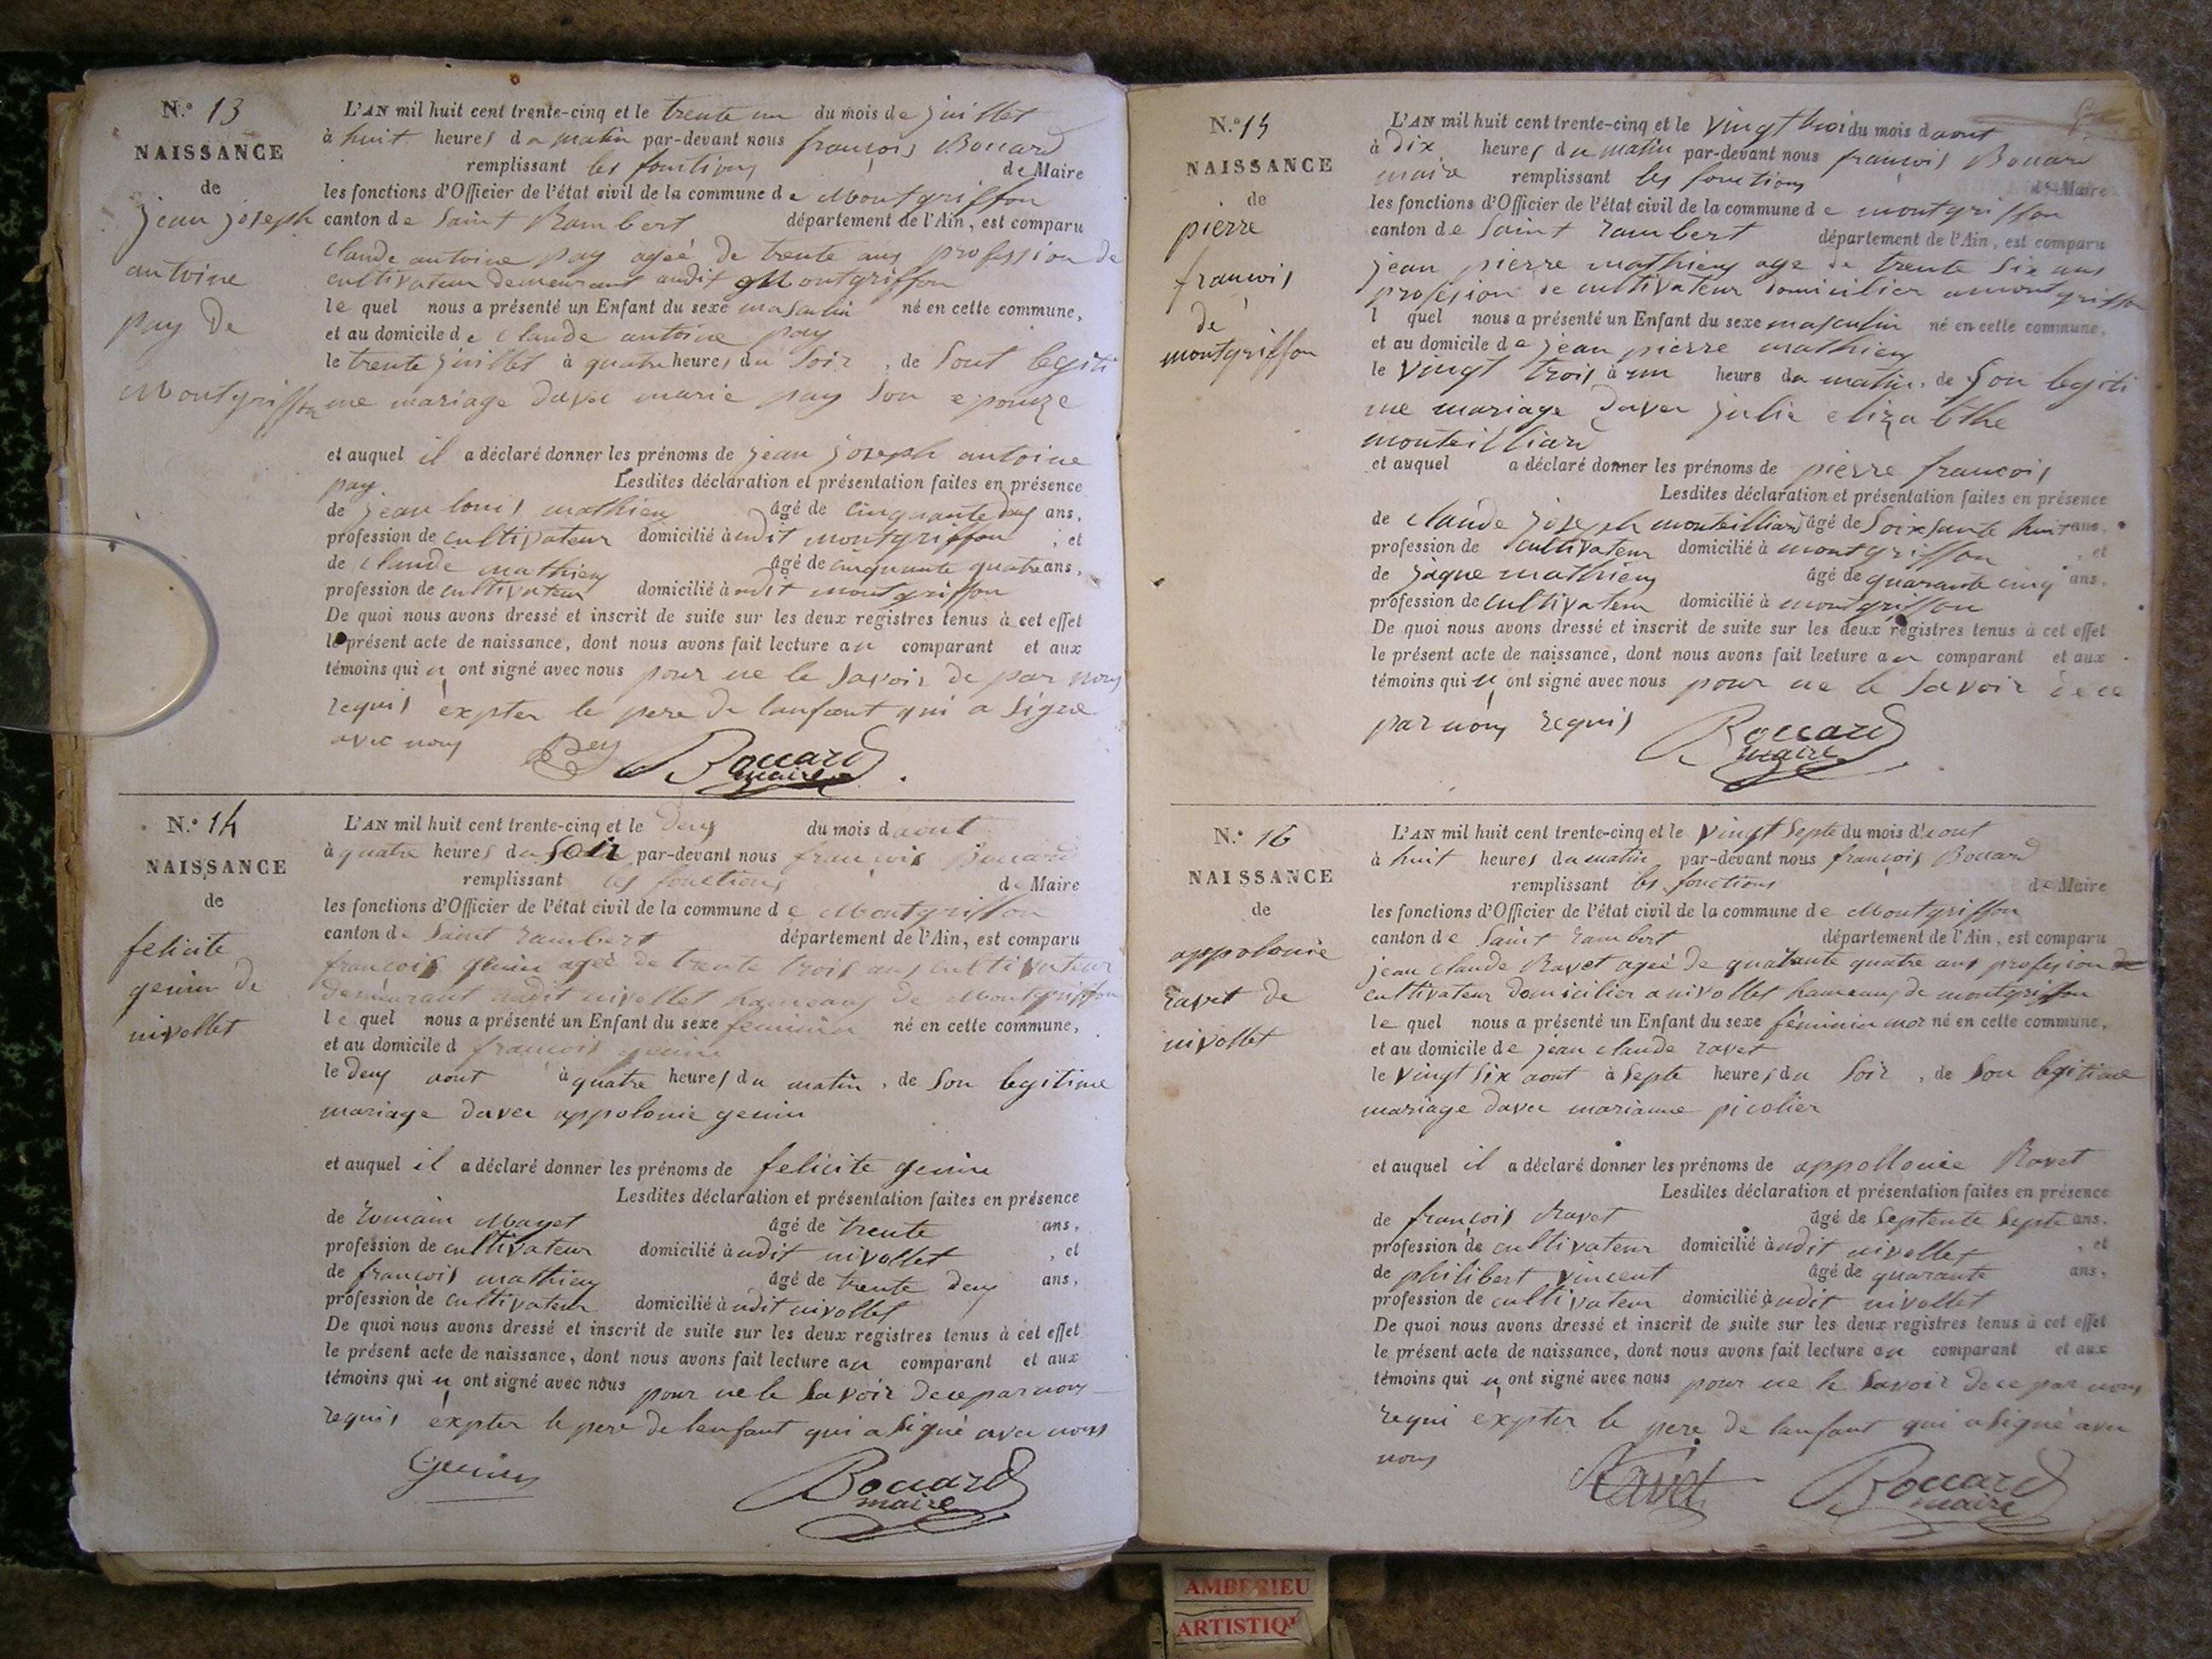 N.° 13
NAISSANCE
de
jean joseph
antoine
pay de
Montgriffon
L'AN mil huit cent trente-cinq et le trente un du mois de juillet
à huit heures du matin par-devant nous françois Bouard
remplissant les fonctions de Maire
les fonctions d'Officier de l'état civil de la commune de Montgriffon
canton de Saint Rambert département de l'Ain, est comparu
claude antoine pay ageé de trente ans profession de
cultivateur demeurant audit Montgriffon
le quel nous a présenté un Enfant du sexe masculin né en cette commune,
et au domicile de claude antoine pay
le trente juillet à quatre heures du soir, de sont legiti
me mariage davec marie pay son epouze
et auquel il a déclaré donner les prénoms de jean joseph antoine
pay Lesdites déclaration et présentation faites en présence
de jean louis mathieu âgé de cinquante ans,
profession de cultivateur domicilié à udit montgriffon, et
de claude mathieu âgé de cinquante quatre ans,
profession de cultivateur domicilié à udit montgriffon
De quoi nous avons dressé et inscrit de suite sur les deux registres tenus à cet effet
le présent acte de naissance, dont nous avons fait lecture au comparant et aux
témoins qui n ont signé avec nous pour ne le savoir de par nous
requis expter le pere de lanfant qui a signé
avec nous
Pey Boccard
maire
N.° 14
NAISSANCE
de
felicite
genin de
nivollet
L'AN mil huit cent trente-cinq et le deux du mois d aout
à quatre heures du soir par-devant nous françois Bouard
remplissant les fonctions de Maire
les fonctions d'Officier de l'état civil de la commune de Montgriffon
canton de Saint rambert département de l'Ain, est comparu
francois genin ageé de trente trois ans cultivateur
demeurant audit nivollet hameaux de Montgriffon
le quel nous a présenté un Enfant du sexe feminin né en cette commune,
et au domicile d francois genin
le deux aout à quatre heures du matin, de son legitime
mariage davec appolonie genin
et auquel il a déclaré donner les prénoms de felicite genin
Lesdites déclaration et présentation faites en présence
de romain Mayet âgé de trente ans,
profession de cultivateur domicilié à udit nivollet, et
de francois mathieu âgé de trente deux ans,
profession de cultivateur domicilié à udit nivollet
De quoi nous avons dressé et inscrit de suite sur les deux registres tenus à cet effet
le présent acte de naissance, dont nous avons fait lecture au comparant et aux
témoins qui n ont signé avec nous pour ne le savoir de ce par nous
requis expter le pere de lenfant qui a signé avec nous
Genin Boccard
maire
N.° 15
NAISSANCE
de
pierre
francois
de
montgriffon
L'AN mil huit cent trente-cinq et le vingt trois du mois d aout
à dix heures du matin par-devant nous françois Bouard
maire remplissant les fonctions de Maire
les fonctions d'Officier de l'état civil de la commune de montgriffon
canton de Saint rambert département de l'Ain, est comparu
jean pierre mathieu age de trente six ans
profesion de cultivateur domicilier a montgriffon
l quel nous a présenté un Enfant du sexe masculin né en cette commune,
et au domicile de jean pierre mathieu
le vingt trois à un heure du matin, de son legiti
me mariage davec julie elizabthe
monteilliard
et auquel a déclaré donner les prénoms de pierre francois
Lesdites déclaration et présentation faites en présence
de claude joseph monteilliard âgé de soixsante huit ans,
profession de cultivateur domicilié à montgriffon, et
de jaque mathieu âgé de quarante cinq ans,
profession de cultivateur domicilié à montgriffon
De quoi nous avons dressé et inscrit de suite sur les deux registres tenus à cet effet
le présent acte de naissance, dont nous avons fait lecture au comparant et aux
témoins qui n ont signé avec nous pour ne le savoir de ce
par nous requis Boccard
maire
N.° 16
NAISSANCE
de
appolonie
ravet de
nivollet
L'AN mil huit cent trente-cinq et le vingt septe du mois d'aout
à huit heures du matin par-devant nous françois Bouard
remplissant les fonctions de Maire
les fonctions d'Officier de l'état civil de la commune de Montgriffon
canton de Saint rambert département de l'Ain, est comparu
jean claude Ravet ageé de quatante quatre ans profesion de
cultivateur domicilier a nivollet hameaux de montgriffon
le quel nous a présenté un Enfant du sexe féminin mor né en cette commune,
et au domicile de jean claude ravet
le vingt six aout à septe heures du soir, de son legitime
mariage davec marianne picolier
et auquel il a déclaré donner les prénoms de appollonie Ravet
Lesdites déclaration et présentation faites en présence
de françois Ravet âgé de septente septe ans,
profession de cultivateur domicilié à udit nivollet, et
de philibert vincent âgé de quarante ans,
profession de cultivateur domicilié à udit nivollet
De quoi nous avons dressé et inscrit de suite sur les deux registres tenus à cet effet
le présent acte de naissance, dont nous avons fait lecture au comparant et aux
témoins qui n ont signé avec nous pour ne le savoir de ce par nous
requi expter le pere de lanfant qui a signé avec
nous
Ravet Boccard
maire
AMBERIEU
ARTISTIQU